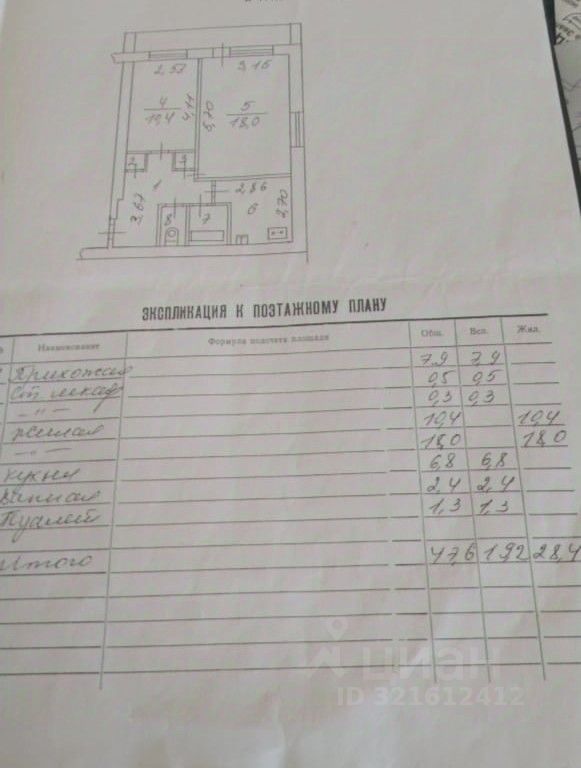 2,57
3,15
4
10,4
4,11
5,70
5
18,0
2
3
1
2,86
3,67
8
7
6
2,70
ЭКСПЛИКАЦИЯ К ПОЭТАЖНОМУ ПЛАНУ
Наименование Формула подсчета площади Общ. Всп. Жил.
Прихожая 7,9 7,9
Ст. шкаф 0,5 0,5
-"- 0,3 0,3
Жилая 10,4 10,4
-"- 18,0 18,0
Кухня 6,8 6,8
Ванная 2,4 2,4
Туалет 1,3 1,3
Итого 47,6 19,2 28,4
циан
ID 321612412